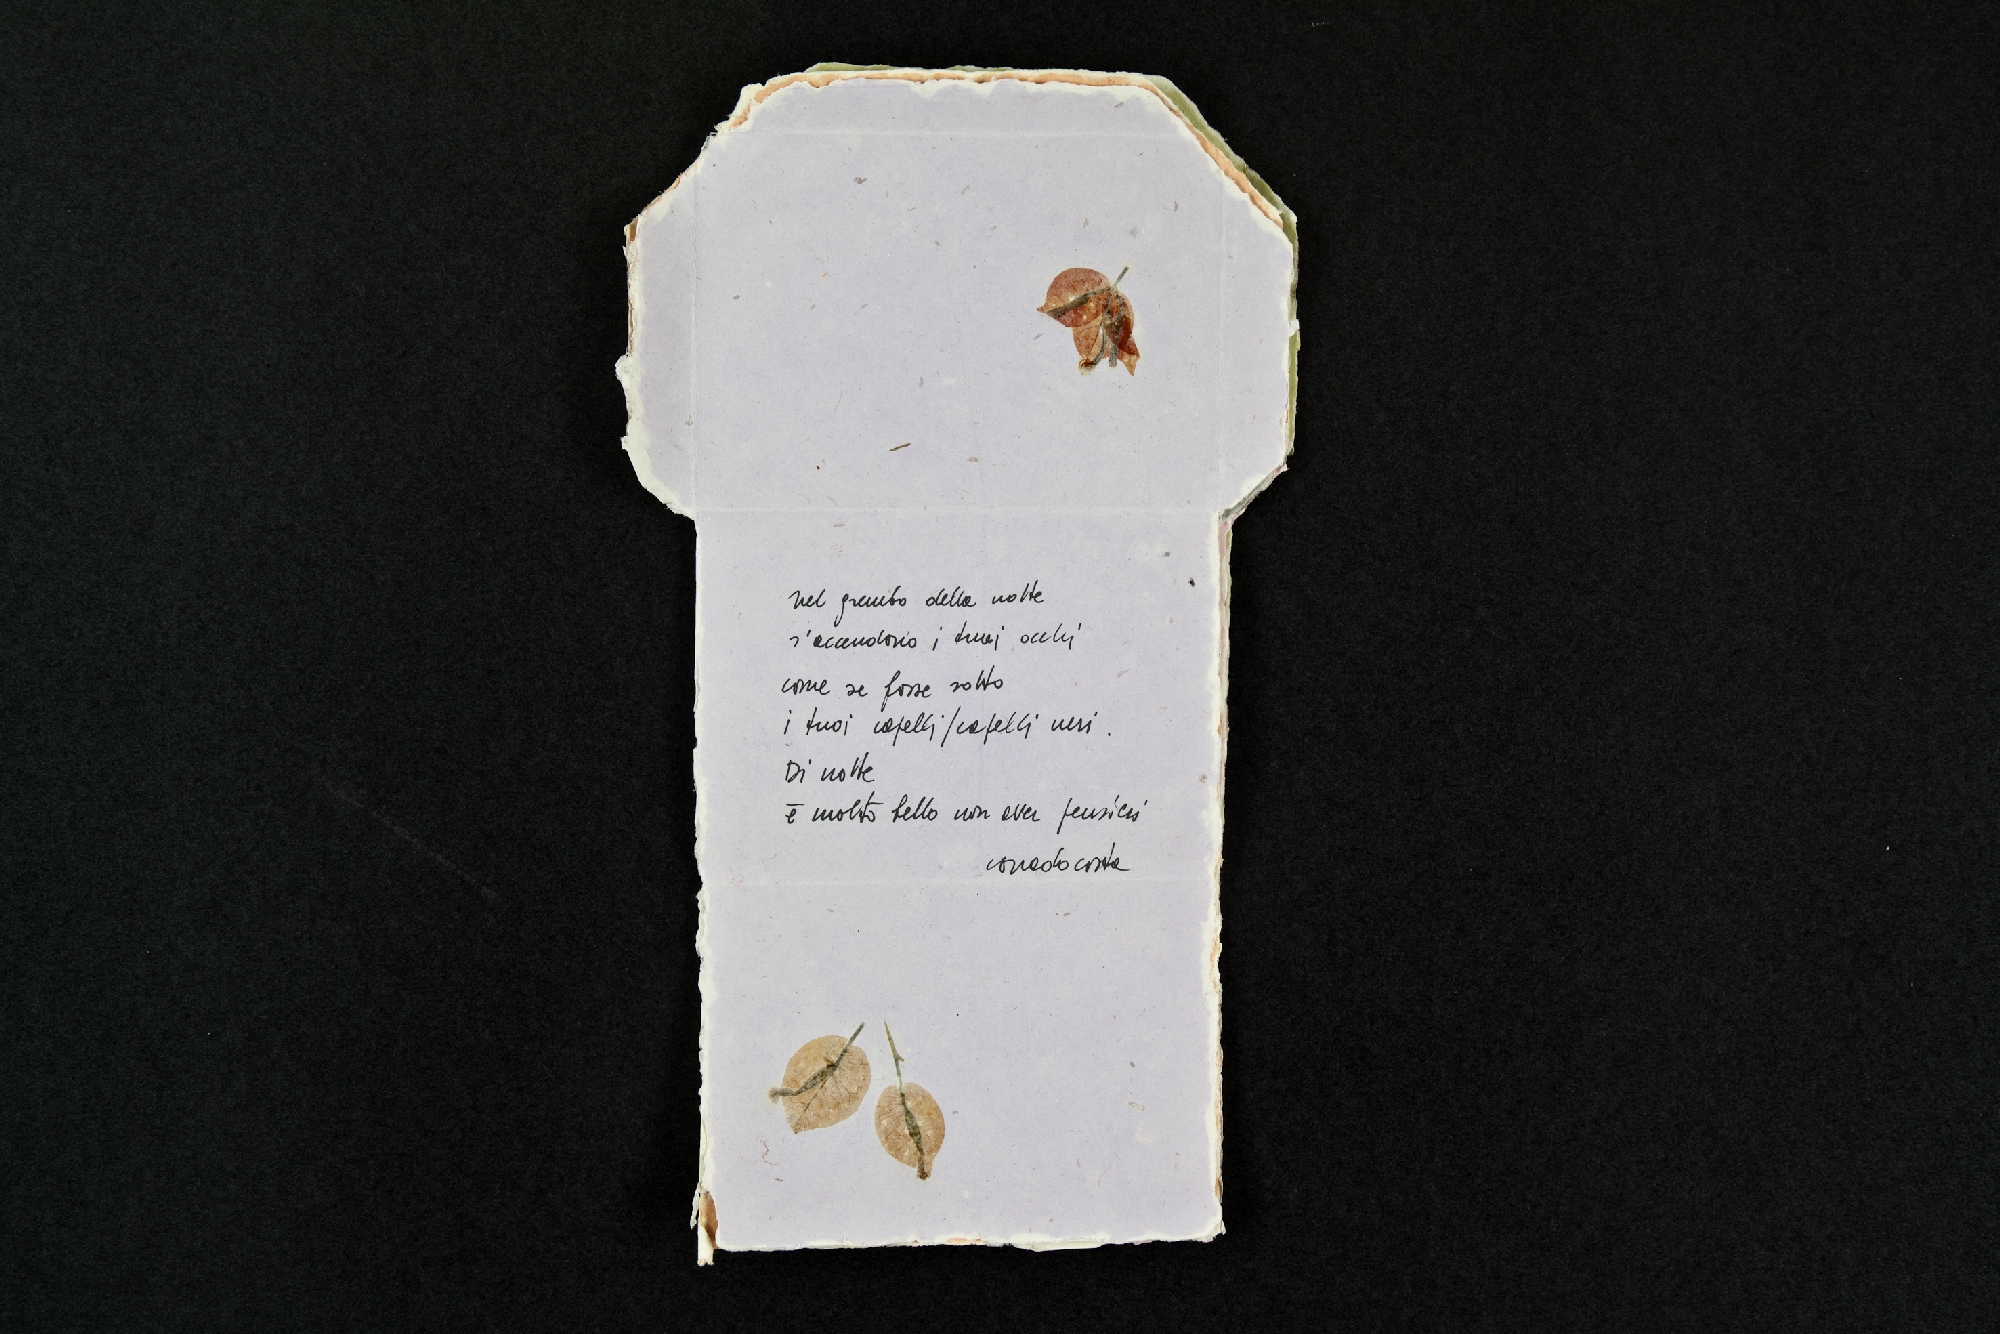 nel grembo della notte
s'accendono i tuoi occhi
come se fosse sotto
i tuoi capelli/capelli neri.
Di notte
è molto bello non aver pensieri
corrado costa